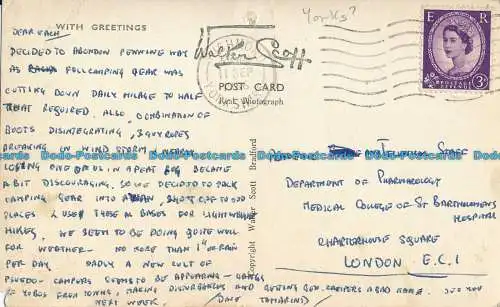 Yorks?
WITH GREETINGS
DEAR EACH
DECIDED TO ABONDON PENNINE WAY
AS FULL CAMPING GEAR WAS
CUTTING DOWN DAILY MILAGE TO HALF
THAT REQUIRED. ALSO, COMBINATION OF
BOOTS DISINTEGRATING, 3 GUY ROPES
BREAKING IN WIND STORM & NEARLY
LOSING ONE OF US IN A PEAT BOG BECAME
A BIT DISCOURAGING, SO WE DECIDED TO PACK
CAMPING GEAR INTO A VAN, SHOOT OFF TO ODD
PLACES & USE THESE AS BASES FOR LIGHTWEIGHT
HIKES. WE SEEM TO BE DOING QUITE WELL
FOR WEATHER - NO MORE THAN 1" OF RAIN
PER DAY. SADLY A NEW CULT OF
PSUEDO-CAMPERS SEEMS TO BE APPEARING - GANGS
OF YOBOS FROM TOWNS, MAKING DISTURBANCES AND GETTING GEN. CAMPERS A BAD NAME. SEE YOU
NEXT WEEK. DAVE
Walter Scott
POST CARD
Real Photograph
Copyright Walter Scott Bradford
E R
POSTAGE REVENUE
3D
TECHNICAL STAFF
DEPARTMENT OF PHARMACOLOGY
MEDICAL COLLEGE OF ST BARTHOLOMEWS
HOSPITAL
CHARTERHOUSE SQUARE
LONDON E.C.1
Dodo-Postcards Dodo-Postcards Dodo-Postcards Dodo-Postcards
Dodo-Postcards Dodo-Postcards Dodo-Postcards Dodo-Postcards